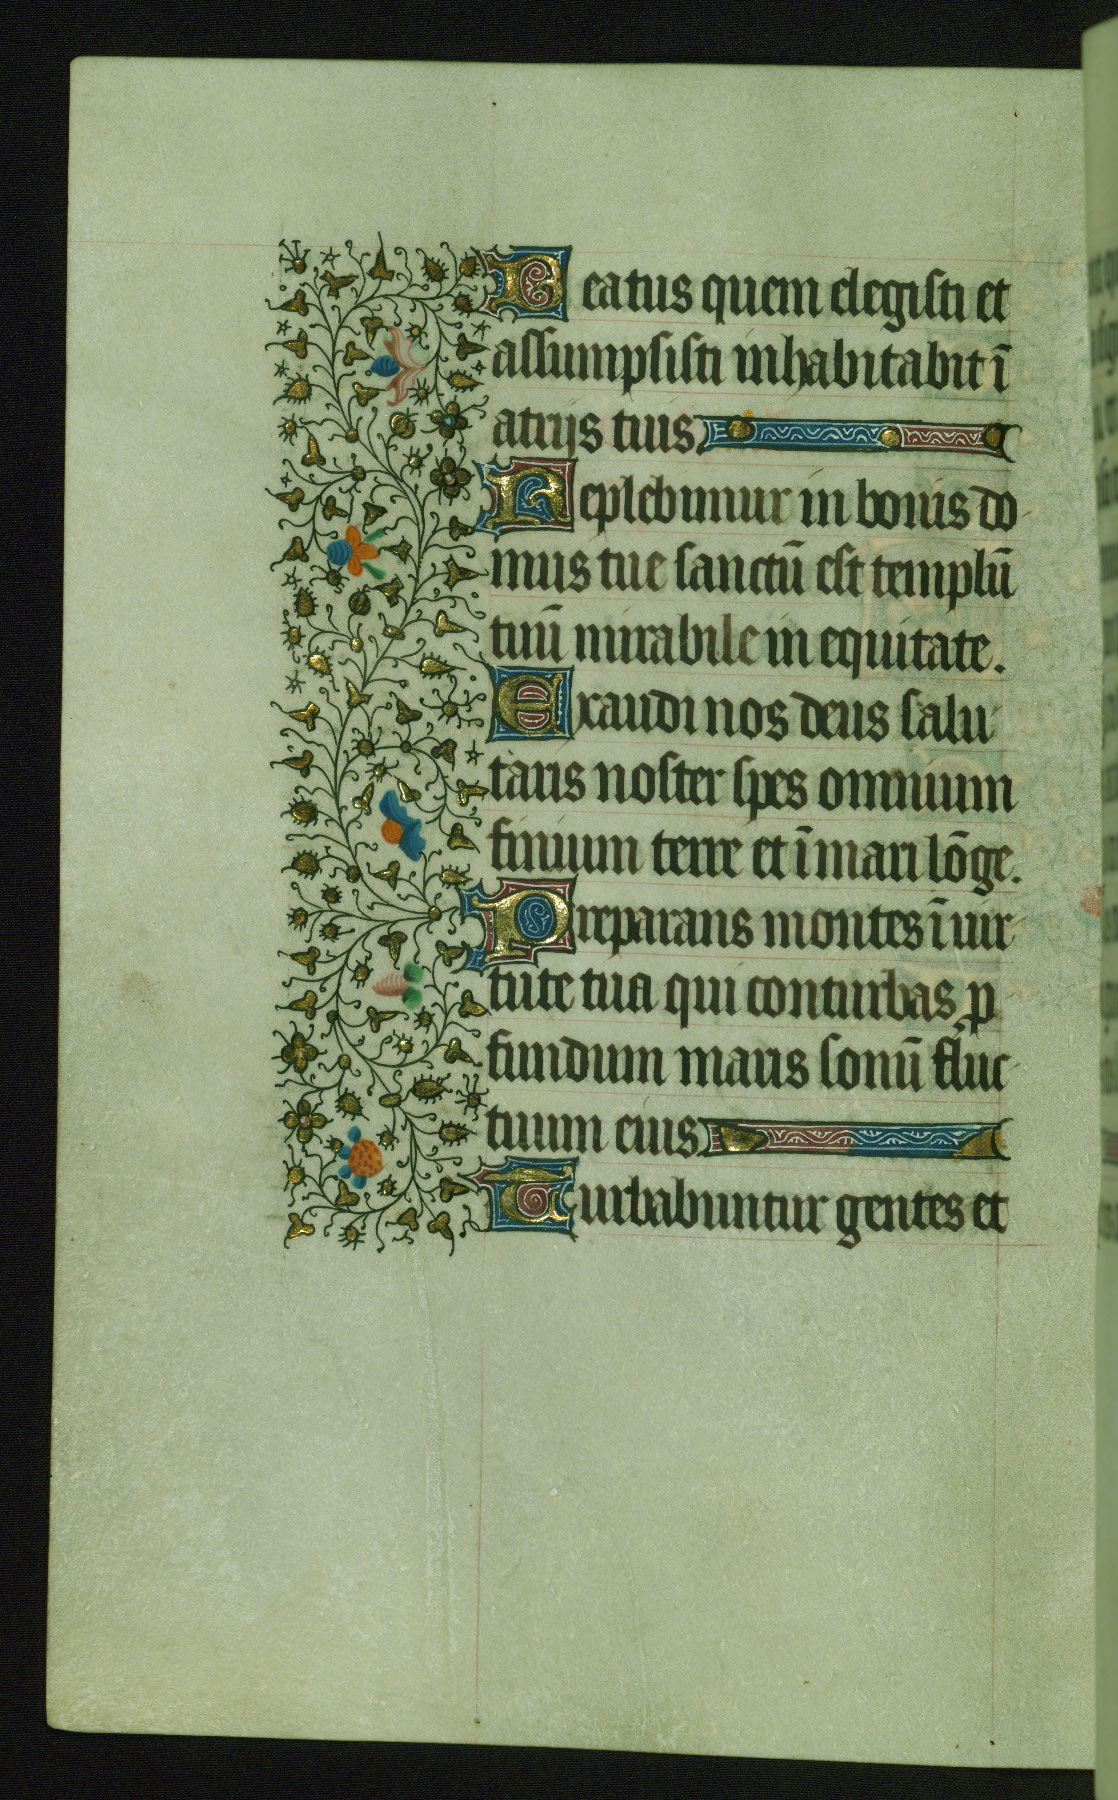 Beatus quem elegisti et
assumpsisti inhabitabit ī
atrijs tuis
Replebimur in bonis do
mus tue sanctū est templū
tuū mirabile in equitate.
Exaudi nos deus salu
taris noster spes omnium
finium terre et ī mari lōge.
Preparans montes ī uir
tute tua qui conturbas ꝓ
fundum maris sonū fluc
tuum eius
Turbabuntur gentes et